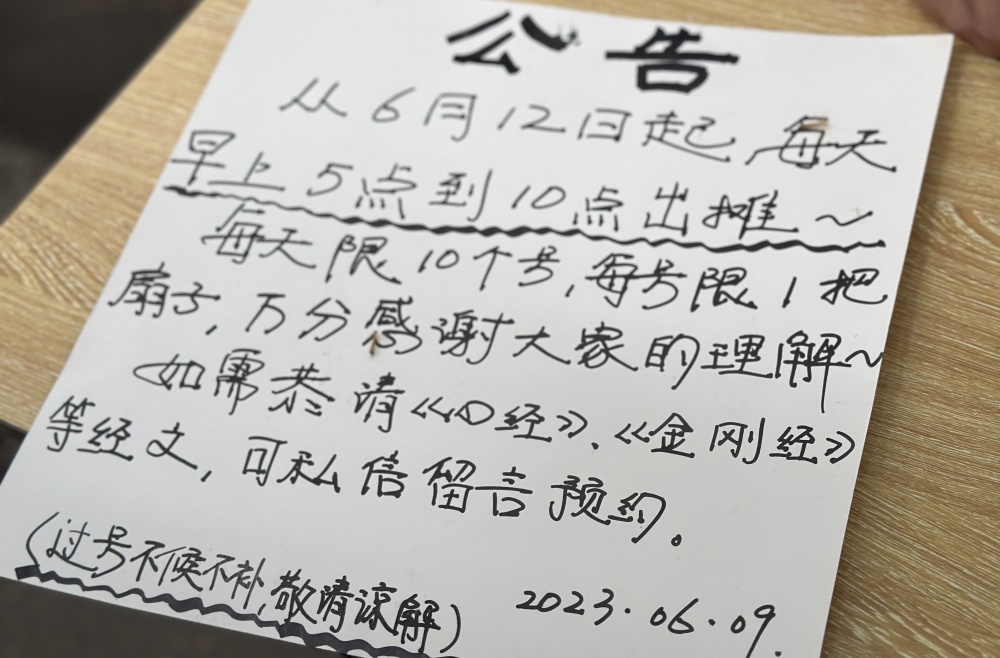 公告
从6月12日起 每天
早上5点到10点出摊～
每天限10个号,每号限1把
扇子,万分感谢大家的理解～
如需恭请《心经》、《金刚经》
等经文,可私信留言预约。
(过号不候不补,敬请谅解)
2023.06.09.